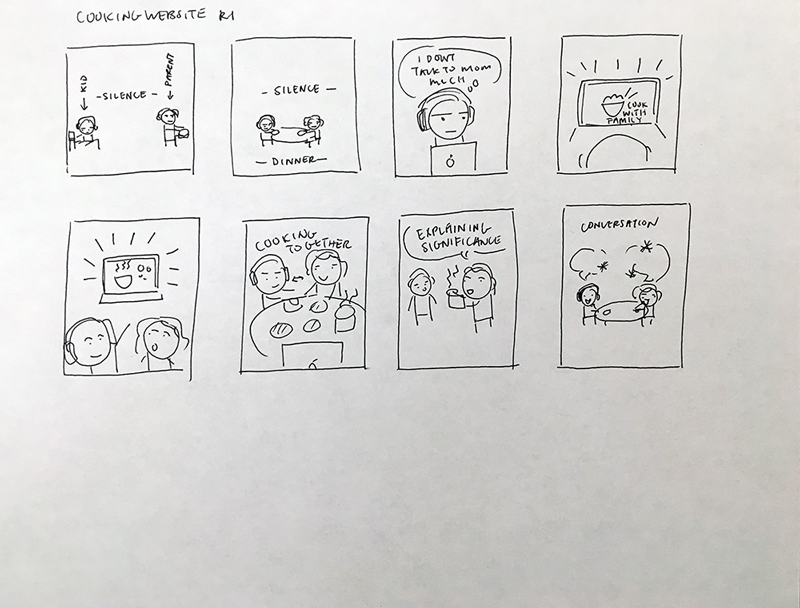 COOKING WEBSITE R1
KID
-SILENCE-
PARENT
- SILENCE -
- DINNER -
I DON'T
TALK TO MOM
MUCH
COOK
WITH
FAMILY
COOKING
TOGETHER
EXPLAINING
SIGNIFICANCE
CONVERSATION